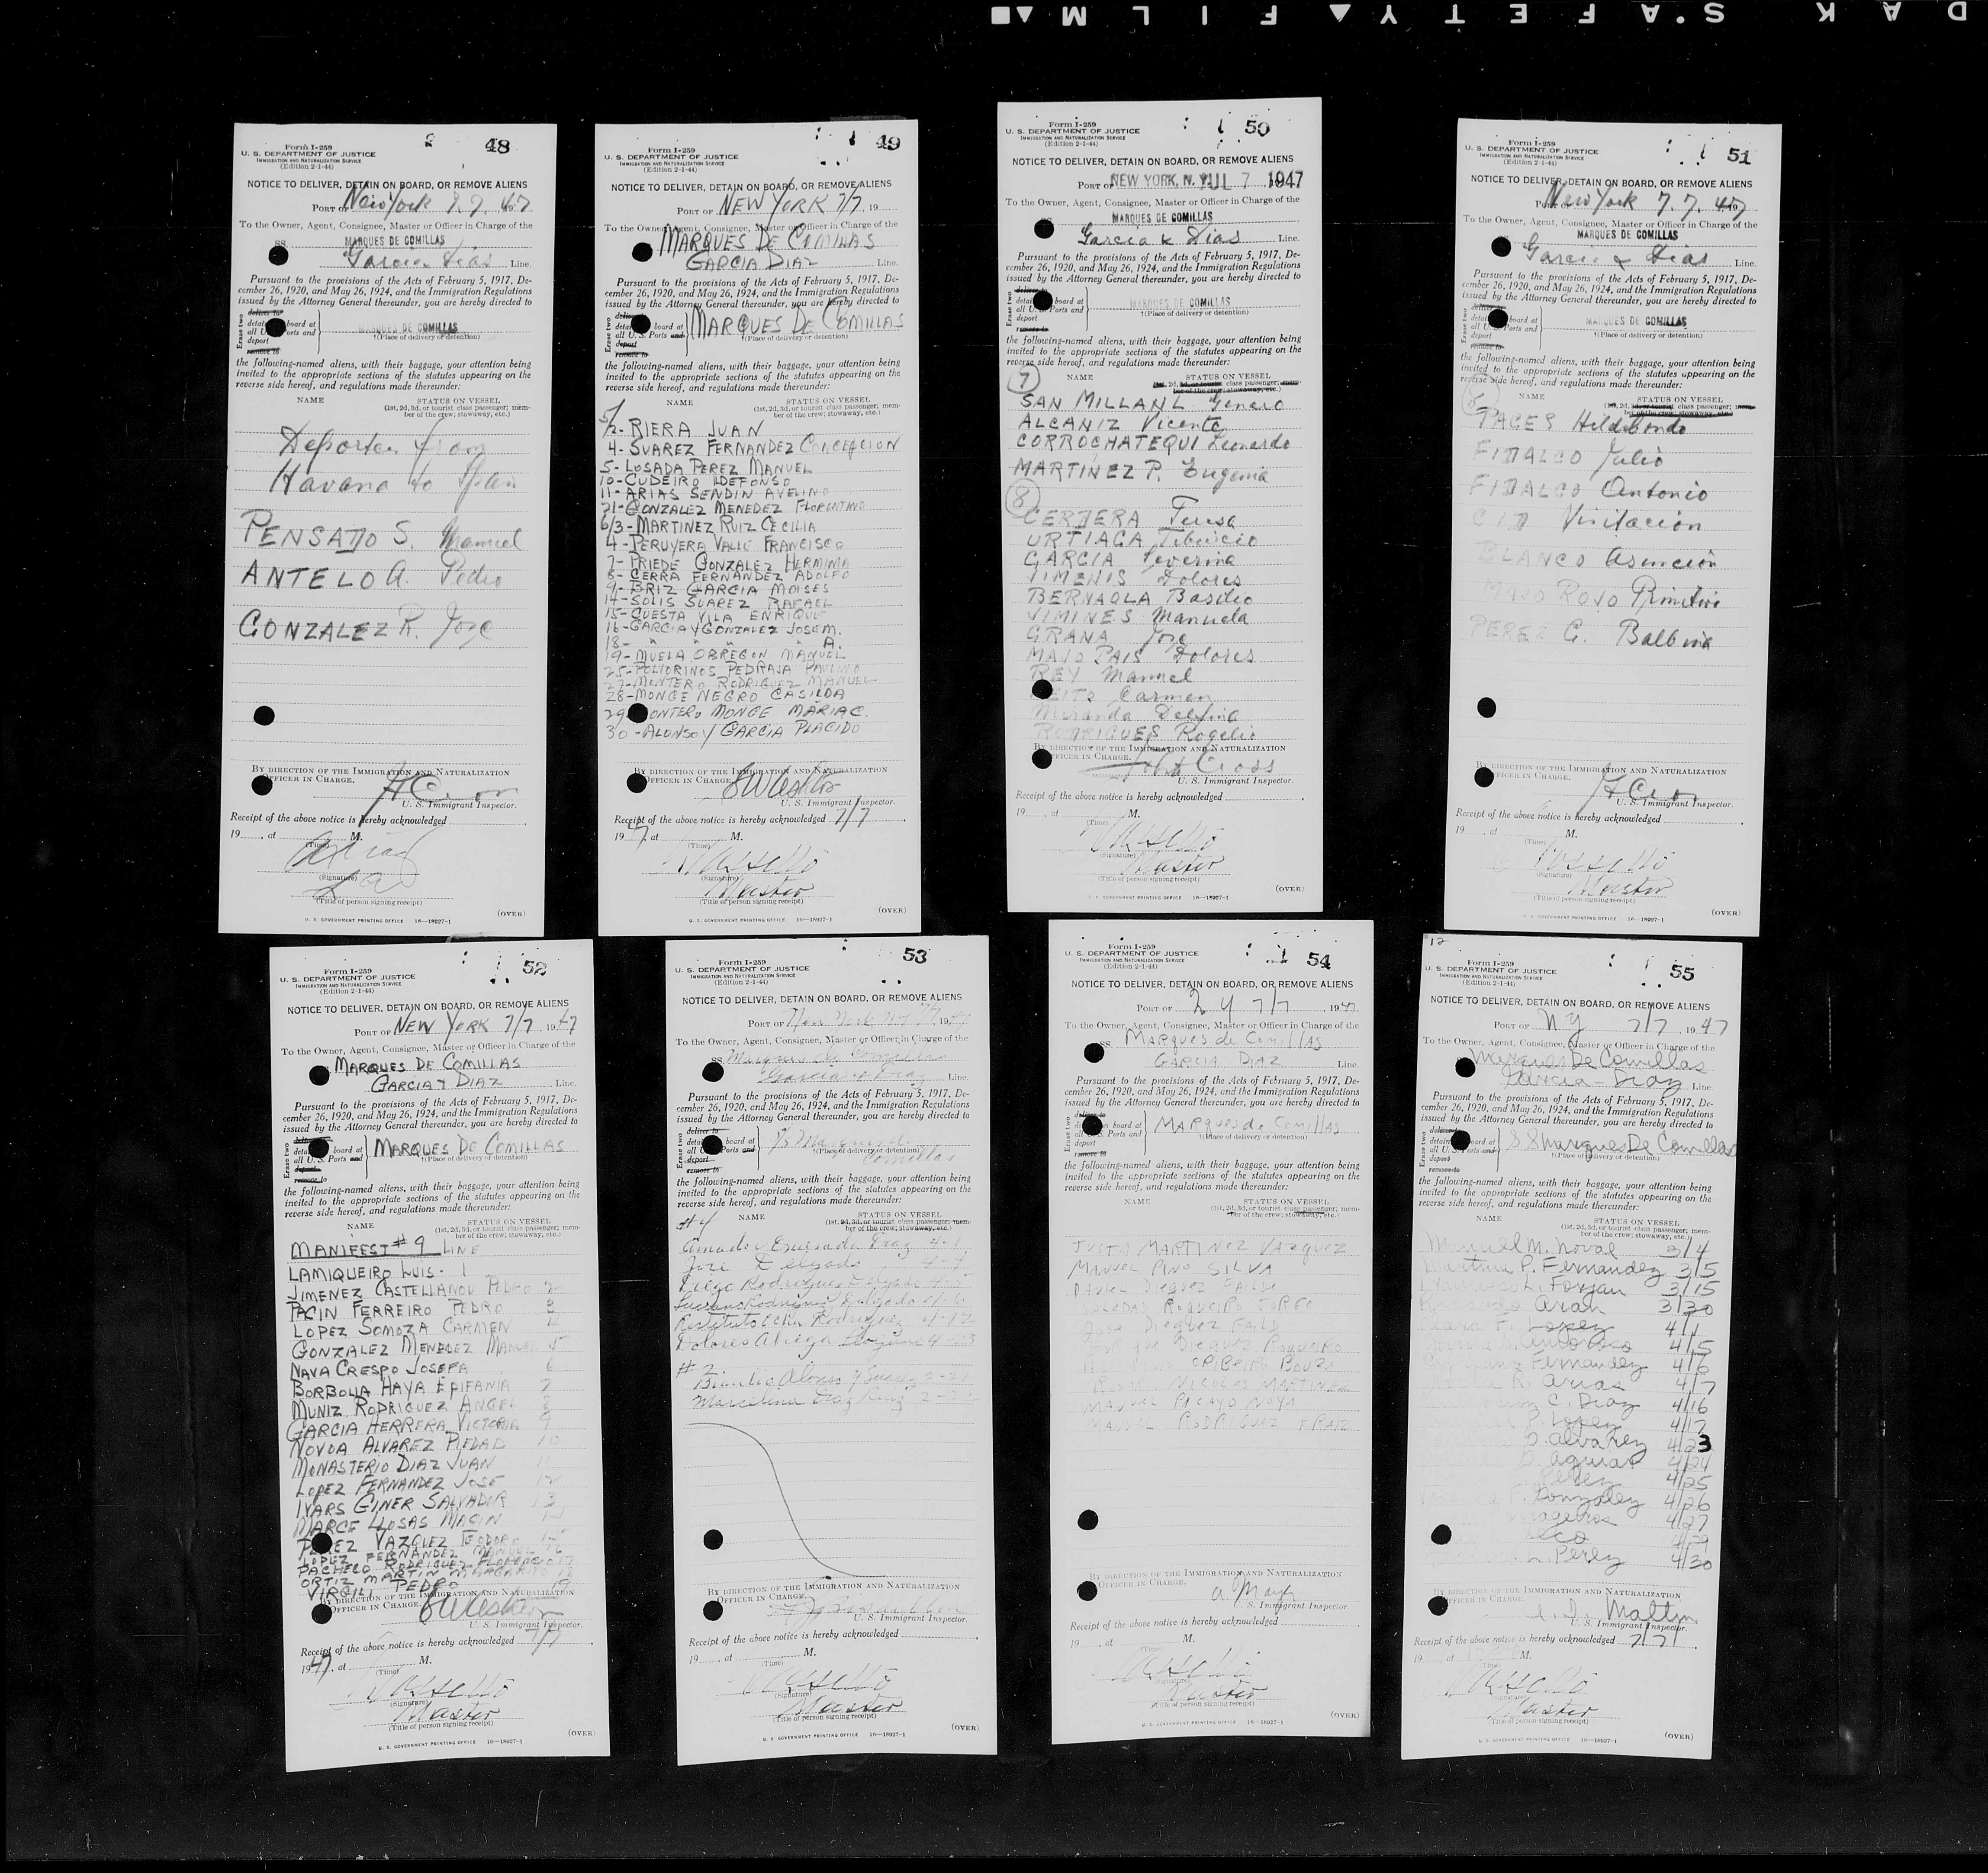 SAFETY FILM
48
Form I-259
U. S. DEPARTMENT OF JUSTICE
IMMIGRATION AND NATURALIZATION SERVICE
(Edition 2-1-44)
NOTICE TO DELIVER, DETAIN ON BOARD, OR REMOVE ALIENS
PORT OF New York 7.7. 1947
To the Owner, Agent, Consignee, Master or Officer in Charge of the
SS. MARQUES DE COMILLAS
Garcia Dias Line.
Pursuant to the provisions of the Acts of February 5, 1917, De-
cember 26, 1920, and May 26, 1924, and the Immigration Regulations
issued by the Attorney General thereunder, you are hereby directed to
Erase two
deliver to
detain on board at
all U. S. Ports and
deport
remove to
MARQUES DE COMILLAS
†(Place of delivery or detention)
the following-named aliens, with their baggage, your attention being
invited to the appropriate sections of the statutes appearing on the
reverse side hereof, and regulations made thereunder:
NAME STATUS ON VESSEL
(1st, 2d, 3d, or tourist class passenger; mem-
ber of the crew; stowaway, etc.)
Havana to
PENSADO S. Manuel
ANTELO A. Pedro
GONZALEZ R. Jose
BY DIRECTION OF THE IMMIGRATION AND NATURALIZATION
OFFICER IN CHARGE.
U. S. Immigrant Inspector.
Receipt of the above notice is hereby acknowledged
19 , at M.
(Time)
(Signature)
(Title of person signing receipt)
(OVER)
U. S. GOVERNMENT PRINTING OFFICE 16—18927-1
49
Form I-259
U. S. DEPARTMENT OF JUSTICE
IMMIGRATION AND NATURALIZATION SERVICE
(Edition 2-1-44)
NOTICE TO DELIVER, DETAIN ON BOARD, OR REMOVE ALIENS
PORT OF NEW YORK 7/7, 19
To the Owner, Agent, Consignee, Master or Officer in Charge of the
MARQUES DE COMILLAS
GARCIA DIAZ Line.
Pursuant to the provisions of the Acts of February 5, 1917, De-
cember 26, 1920, and May 26, 1924, and the Immigration Regulations
issued by the Attorney General thereunder, you are hereby directed to
Erase two
deliver to
detain on board at
all U. S. Ports and
deport
remove to
MARQUES DE COMILLAS
†(Place of delivery or detention)
the following-named aliens, with their baggage, your attention being
invited to the appropriate sections of the statutes appearing on the
reverse side hereof, and regulations made thereunder:
NAME STATUS ON VESSEL
(1st, 2d, 3d, or tourist class passenger; mem-
ber of the crew; stowaway, etc.)
5/2- RIERA JUAN
4- SUAREZ FERNANDEZ CONCEPCION
5- LOSADA PEREZ MANUEL
10- CUDEIRO ILDEFONSO
11- ARIAS SENDIN AVELINO
21- GONZALEZ MENEDEZ FLORENTINO
6/3- MARTINEZ RUIZ CECILIA
4- PERUYERA VALLE FRANCISCO
7- PRIEDE GONZALEZ HERMINIA
8- CERRA FERNANDEZ ADOLFO
9- BRIZ GARCIA MOISES
14- SOLIS SUAREZ RAFAEL
15- CUESTA VILA ENRIQUE
16- GARCIA Y GONZALEZ JOSE M.
18- " " " A.
19- MUELA OBREGON MANUEL
25- POLVORINOS PEDRAJA PAULINO
27- MONTERO RODRIGUEZ MANUEL
28- MONGE NEGRO CASILDA
29 MONTERO MONGE MARIA C.
30- ALONSO Y GARCIA PLACIDO
BY DIRECTION OF THE IMMIGRATION AND NATURALIZATION
OFFICER IN CHARGE.
U. S. Immigrant Inspector.
Receipt of the above notice is hereby acknowledged 7/7
1947, at M.
(Time)
(Signature)
Master
(Title of person signing receipt)
(OVER)
U. S. GOVERNMENT PRINTING OFFICE 16—18927-1
50
Form I-259
U. S. DEPARTMENT OF JUSTICE
IMMIGRATION AND NATURALIZATION SERVICE
(Edition 2-1-44)
NOTICE TO DELIVER, DETAIN ON BOARD, OR REMOVE ALIENS
PORT OF NEW YORK, N. Y. JUL 7 1947
To the Owner, Agent, Consignee, Master or Officer in Charge of the
SS. MARQUES DE COMILLAS
Garcia & Dias Line.
Pursuant to the provisions of the Acts of February 5, 1917, De-
cember 26, 1920, and May 26, 1924, and the Immigration Regulations
issued by the Attorney General thereunder, you are hereby directed to
Erase two
deliver to
detain on board at
all U. S. Ports and
deport
remove to
MARQUES DE COMILLAS
†(Place of delivery or detention)
the following-named aliens, with their baggage, your attention being
invited to the appropriate sections of the statutes appearing on the
reverse side hereof, and regulations made thereunder:
7 NAME STATUS ON VESSEL
(1st, 2d, 3d, or tourist class passenger; mem-
ber of the crew; stowaway, etc.)
SAN MILLAN L Genero
ALCANIZ Vicente
CORROCHATEQUI Leonardo
MARTINEZ P. Eugenia
8
CERDERA Teresa
URTIAGA Tiburcio
GARCIA Severina
JIMENIS Dolores
BERNAOLA Basilio
JIMINES Manuela
GRANA Jose
MAJO PAIS Dolores
REY Manuel
Carmen
Miranda Delfina
RODRIGUES Rogelio
BY DIRECTION OF THE IMMIGRATION AND NATURALIZATION
OFFICER IN CHARGE.
Cross
U. S. Immigrant Inspector.
Receipt of the above notice is hereby acknowledged
19 , at M.
(Time)
(Signature)
Master
(Title of person signing receipt)
(OVER)
U. S. GOVERNMENT PRINTING OFFICE 16—18927-1
51
Form I-259
U. S. DEPARTMENT OF JUSTICE
IMMIGRATION AND NATURALIZATION SERVICE
(Edition 2-1-44)
NOTICE TO DELIVER, DETAIN ON BOARD, OR REMOVE ALIENS
PORT OF New York 7.7. 1947
To the Owner, Agent, Consignee, Master or Officer in Charge of the
SS. MARQUES DE COMILLAS
Garcia & Dias Line.
Pursuant to the provisions of the Acts of February 5, 1917, De-
cember 26, 1920, and May 26, 1924, and the Immigration Regulations
issued by the Attorney General thereunder, you are hereby directed to
Erase two
deliver to
detain on board at
all U. S. Ports and
deport
remove to
MARQUES DE COMILLAS
†(Place of delivery or detention)
the following-named aliens, with their baggage, your attention being
invited to the appropriate sections of the statutes appearing on the
reverse side hereof, and regulations made thereunder:
8 NAME STATUS ON VESSEL
(1st, 2d, 3d, or tourist class passenger; mem-
ber of the crew; stowaway, etc.)
PAGES Hildebondo
FIDALGO Julio
FIDALGO Antonio
CID Visitacion
BLANCO Asuncion
MAJO ROJO Primitivo
PEREZ G. Balbina
BY DIRECTION OF THE IMMIGRATION AND NATURALIZATION
OFFICER IN CHARGE.
U. S. Immigrant Inspector.
Receipt of the above notice is hereby acknowledged
19 , at M.
(Time)
(Signature)
Master
(Title of person signing receipt)
(OVER)
U. S. GOVERNMENT PRINTING OFFICE 16—18927-1
52
Form I-259
U. S. DEPARTMENT OF JUSTICE
IMMIGRATION AND NATURALIZATION SERVICE
(Edition 2-1-44)
NOTICE TO DELIVER, DETAIN ON BOARD, OR REMOVE ALIENS
PORT OF NEW YORK 7/7, 1947
To the Owner, Agent, Consignee, Master or Officer in Charge of the
MARQUES DE COMILLAS
GARCIA Y DIAZ Line.
Pursuant to the provisions of the Acts of February 5, 1917, De-
cember 26, 1920, and May 26, 1924, and the Immigration Regulations
issued by the Attorney General thereunder, you are hereby directed to
Erase two
deliver to
detain on board at
all U. S. Ports and
deport
remove to
MARQUES DE COMILLAS
†(Place of delivery or detention)
the following-named aliens, with their baggage, your attention being
invited to the appropriate sections of the statutes appearing on the
reverse side hereof, and regulations made thereunder:
NAME STATUS ON VESSEL
(1st, 2d, 3d, or tourist class passenger; mem-
ber of the crew; stowaway, etc.)
MANIFEST #9 LINE
LAMIQUEIRO LUIS - 1
JIMENEZ CASTELLANOU PEDRO 2
PACIN FERREIRO PEDRO 3
LOPEZ SOMOZA CARMEN 4
GONZALEZ MENEDEZ MANUEL 5
NAVA CRESPO JOSEFA 6
BORBOLLA HAYA EPIFANIA 7
MUNIZ RODRIGUEZ ANGEL 8
GARCIA HERRERA VICTORIA 9
NOVOA ALVAREZ PIEDAD 10
MONASTERIO DIAZ JUAN 11
LOPEZ FERNANDEZ JOSE 12
IVARS GINER SALVADOR 13
MARCE LLOSAS MAGIN 14
PEREZ VAZQUEZ TEODORO 15
LOPEZ FERNANDEZ MANUEL 16
PACHECO RODRIGUEZ FLORENCIO 17
ORTIZ MARTIN MARGARITO 18
VIRGILI PEDRO 19
BY DIRECTION OF THE IMMIGRATION AND NATURALIZATION
OFFICER IN CHARGE.
U. S. Immigrant Inspector.
Receipt of the above notice is hereby acknowledged 7/7
1947, at M.
(Time)
(Signature)
Master
(Title of person signing receipt)
(OVER)
U. S. GOVERNMENT PRINTING OFFICE 16—18927-1
53
Form I-259
U. S. DEPARTMENT OF JUSTICE
IMMIGRATION AND NATURALIZATION SERVICE
(Edition 2-1-44)
NOTICE TO DELIVER, DETAIN ON BOARD, OR REMOVE ALIENS
PORT OF New York NY 7/7, 1947
To the Owner, Agent, Consignee, Master or Officer in Charge of the
SS. Marques de Comillas
Garcia & Diaz Line.
Pursuant to the provisions of the Acts of February 5, 1917, De-
cember 26, 1920, and May 26, 1924, and the Immigration Regulations
issued by the Attorney General thereunder, you are hereby directed to
Erase two
deliver to
detain on board at
all U. S. Ports and
deport
remove to
S/S Marques de Comillas
†(Place of delivery or detention)
the following-named aliens, with their baggage, your attention being
invited to the appropriate sections of the statutes appearing on the
reverse side hereof, and regulations made thereunder:
#4 NAME STATUS ON VESSEL
(1st, 2d, 3d, or tourist class passenger; mem-
ber of the crew; stowaway, etc.)
Amador Quesada Diaz 4-1
Jose Delgado
Diego Rodriguez Delgado
Rodriguez Delgado 4-6
Rodriguez 4-12
Dolores 4-23
#2
Alonso y Suarez 2-21
Marcelina Diaz Ruiz
BY DIRECTION OF THE IMMIGRATION AND NATURALIZATION
OFFICER IN CHARGE.
U. S. Immigrant Inspector.
Receipt of the above notice is hereby acknowledged
19 , at M.
(Time)
(Signature)
Master
(Title of person signing receipt)
(OVER)
U. S. GOVERNMENT PRINTING OFFICE 16—18927-1
54
Form I-259
U. S. DEPARTMENT OF JUSTICE
IMMIGRATION AND NATURALIZATION SERVICE
(Edition 2-1-44)
NOTICE TO DELIVER, DETAIN ON BOARD, OR REMOVE ALIENS
PORT OF 2 Y 7/7, 1947
To the Owner, Agent, Consignee, Master or Officer in Charge of the
SS. Marques de Comillas
GARCIA DIAZ Line.
Pursuant to the provisions of the Acts of February 5, 1917, De-
cember 26, 1920, and May 26, 1924, and the Immigration Regulations
issued by the Attorney General thereunder, you are hereby directed to
Erase two
deliver to
detain on board at
all U. S. Ports and
deport
remove to
MARQUES de Comillas
†(Place of delivery or detention)
the following-named aliens, with their baggage, your attention being
invited to the appropriate sections of the statutes appearing on the
reverse side hereof, and regulations made thereunder:
NAME STATUS ON VESSEL
(1st, 2d, 3d, or tourist class passenger; mem-
ber of the crew; stowaway, etc.)
JUSTO MARTINEZ VAZQUEZ
MANUEL PINO SILVA
DANIEL DIEGUEZ FAILDE
SOLEDAD ROQUEIRO JORGO
JOSE DIEGUEZ FAILD
ENRIQUE DIEGUEZ ROQUEIRO
CRIBEIRO BOUZA
NICOLAS MARTINEZ
MANUEL PICAYO NOYA
MANUEL RODRIGUEZ FRAIZ
BY DIRECTION OF THE IMMIGRATION AND NATURALIZATION
OFFICER IN CHARGE.
U. S. Immigrant Inspector.
Receipt of the above notice is hereby acknowledged
19 , at M.
(Time)
(Signature)
Master
(Title of person signing receipt)
(OVER)
U. S. GOVERNMENT PRINTING OFFICE 16—18927-1
12
55
Form I-259
U. S. DEPARTMENT OF JUSTICE
IMMIGRATION AND NATURALIZATION SERVICE
(Edition 2-1-44)
NOTICE TO DELIVER, DETAIN ON BOARD, OR REMOVE ALIENS
PORT OF NY 7/7, 1947
To the Owner, Agent, Consignee, Master or Officer in Charge of the
Marques De Comillas
Garcia - Diaz Line.
Pursuant to the provisions of the Acts of February 5, 1917, De-
cember 26, 1920, and May 26, 1924, and the Immigration Regulations
issued by the Attorney General thereunder, you are hereby directed to
Erase two
deliver to
detain on board at
all U. S. Ports and
deport
remove to
SS Marques De Comillas
†(Place of delivery or detention)
the following-named aliens, with their baggage, your attention being
invited to the appropriate sections of the statutes appearing on the
reverse side hereof, and regulations made thereunder:
NAME STATUS ON VESSEL
(1st, 2d, 3d, or tourist class passenger; mem-
ber of the crew; stowaway, etc.)
Manuel M. Noval 3/4
Martina P. Fernandez 3/5
Francisco L. Forjan 3/15
Aran 3/30
F. Lopez 4/1
4/5
Fernandez 4/6
R. Arias 4/7
C. Diaz 4/16
P. Lopez 4/17
D. Alvarez 4/23
Aguiar 4/24
Perez 4/25
F. Gonzalez 4/26
4/27
4/29
L. Perez 4/30
BY DIRECTION OF THE IMMIGRATION AND NATURALIZATION
OFFICER IN CHARGE.
U. S. Immigrant Inspector.
Receipt of the above notice is hereby acknowledged 7/7
19 , at M.
(Time)
(Signature)
Master
(Title of person signing receipt)
(OVER)
U. S. GOVERNMENT PRINTING OFFICE 16—18927-1